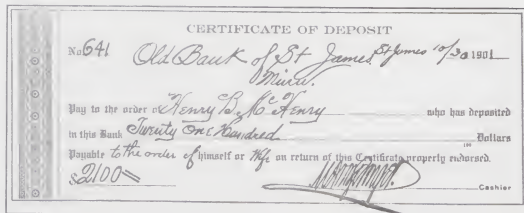 CERTIFICATE OF DEPOSIT
No 641 Old Bank of St James, St James 10/30 1901
Minn.
Pay to the order of Henry B. McHenry who has deposited
in this Bank Twenty One Hundred Dollars
100
Payable to the order of himself or Wife on return of this Certificate properly endorsed.
$2100
Cashier